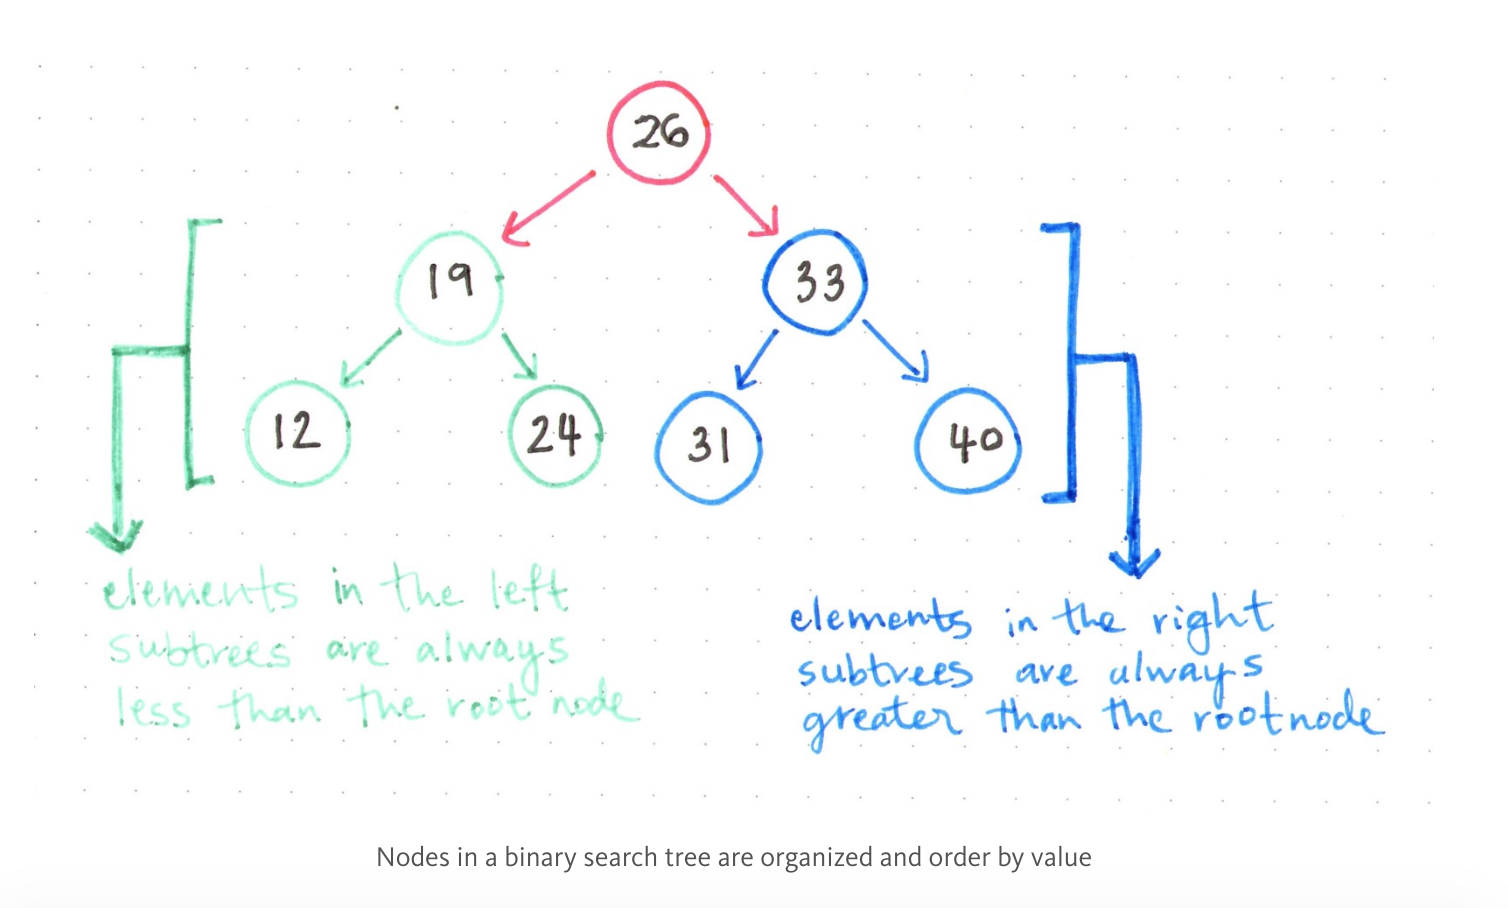 26
19
33
12
24
31
40
elements in the left
subtrees are always
less than the root node
elements in the right
subtrees are always
greater than the rootnode
Nodes in a binary search tree are organized and order by value